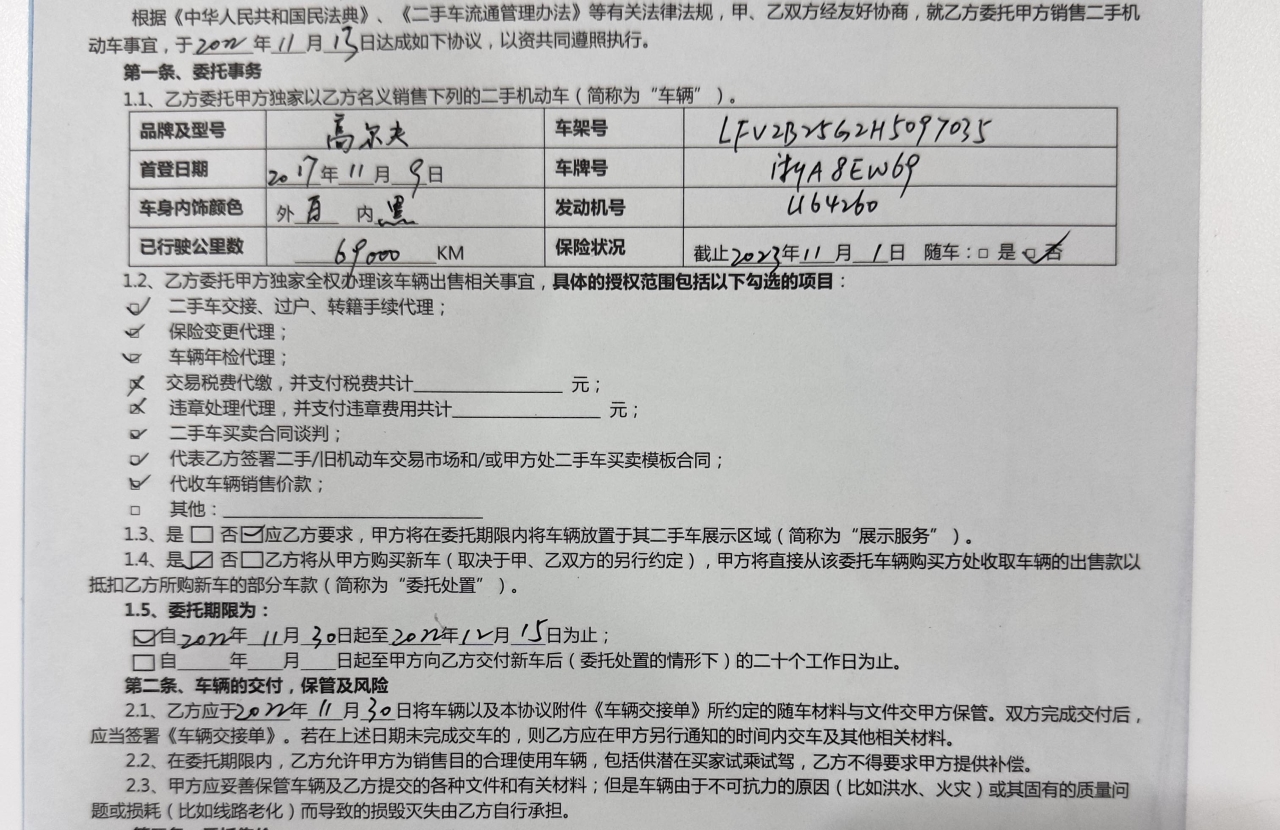 根据《中华人民共和国民法典》、《二手车流通管理办法》等有关法律法规，甲、乙双方经友好协商，就乙方委托甲方销售二手机
动车事宜，于2022年11月13日达成如下协议，以资共同遵照执行。
第一条、委托事务
1.1、乙方委托甲方独家以乙方名义销售下列的二手机动车（简称为“车辆”）。
品牌及型号 高尔夫 车架号 LFV2B25G2H5097035
首登日期 2017年11月9日 车牌号 浙A8EW69
车身内饰颜色 外白 内黑 发动机号 U64260
已行驶公里数 69000 KM 保险状况 截止2023年11月1日 随车：□是 ☑否
1.2、乙方委托甲方独家全权办理该车辆出售相关事宜，具体的授权范围包括以下勾选的项目：
☑ 二手车交接、过户、转籍手续代理；
☑ 保险变更代理；
☑ 车辆年检代理；
☒ 交易税费代缴，并支付税费共计______元；
☒ 违章处理代理，并支付违章费用共计______元；
☑ 二手车买卖合同谈判；
☑ 代表乙方签署二手/旧机动车交易市场和/或甲方处二手车买卖模板合同；
☑ 代收车辆销售价款；
□ 其他：______
1.3、是□ 否☑应乙方要求，甲方将在委托期限内将车辆放置于其二手车展示区域（简称为“展示服务”）。
1.4、是☑ 否□乙方将从甲方购买新车（取决于甲、乙双方的另行约定），甲方将直接从该委托车辆购买方处收取车辆的出售款以
抵扣乙方所购新车的部分车款（简称为“委托处置”）。
1.5、委托期限为：
☑自2022年11月30日起至2022年12月15日为止；
□自____年____月____日起至甲方向乙方交付新车后（委托处置的情形下）的二十个工作日为止。
第二条、车辆的交付，保管及风险
2.1、乙方应于2022年11月30日将车辆以及本协议附件《车辆交接单》所约定的随车材料与文件交甲方保管。双方完成交付后，
应当签署《车辆交接单》。若在上述日期未完成交车的，则乙方应在甲方另行通知的时间内交车及其他相关材料。
2.2、在委托期限内，乙方允许甲方为销售目的合理使用车辆，包括供潜在买家试乘试驾，乙方不得要求甲方提供补偿。
2.3、甲方应妥善保管车辆及乙方提交的各种文件和有关材料；但是车辆由于不可抗力的原因（比如洪水、火灾）或其固有的质量问
题或损耗（比如线路老化）而导致的损毁灭失由乙方自行承担。